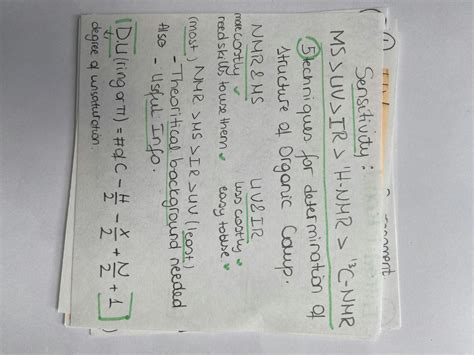 Sensitivity:
MS > UV > IR > ¹H-NMR > ¹³C-NMR
5 techniques for determination of
structure of Organic Comp.
NMR & MS UV & IR
more costly less costly
need skills to use them easy to use
(most) NMR > MS > IR > UV (least)
- Theoritical background needed
Also - Useful Info.
D.U (ring or π) = # of C - H/2 - X/2 + N/2 + 1
degree of unsaturation